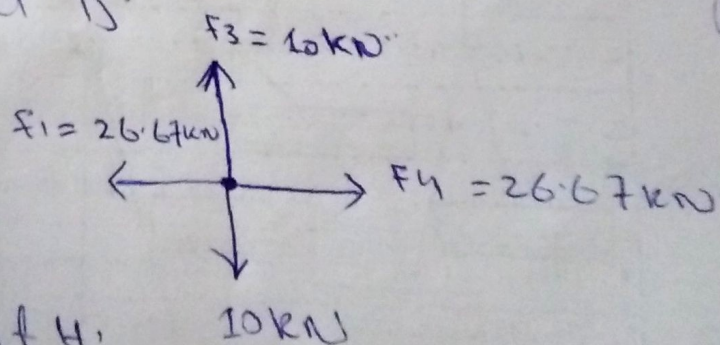 F3 = 10KN
F1 = 26.67KN
F4 = 26.67KN
10KN